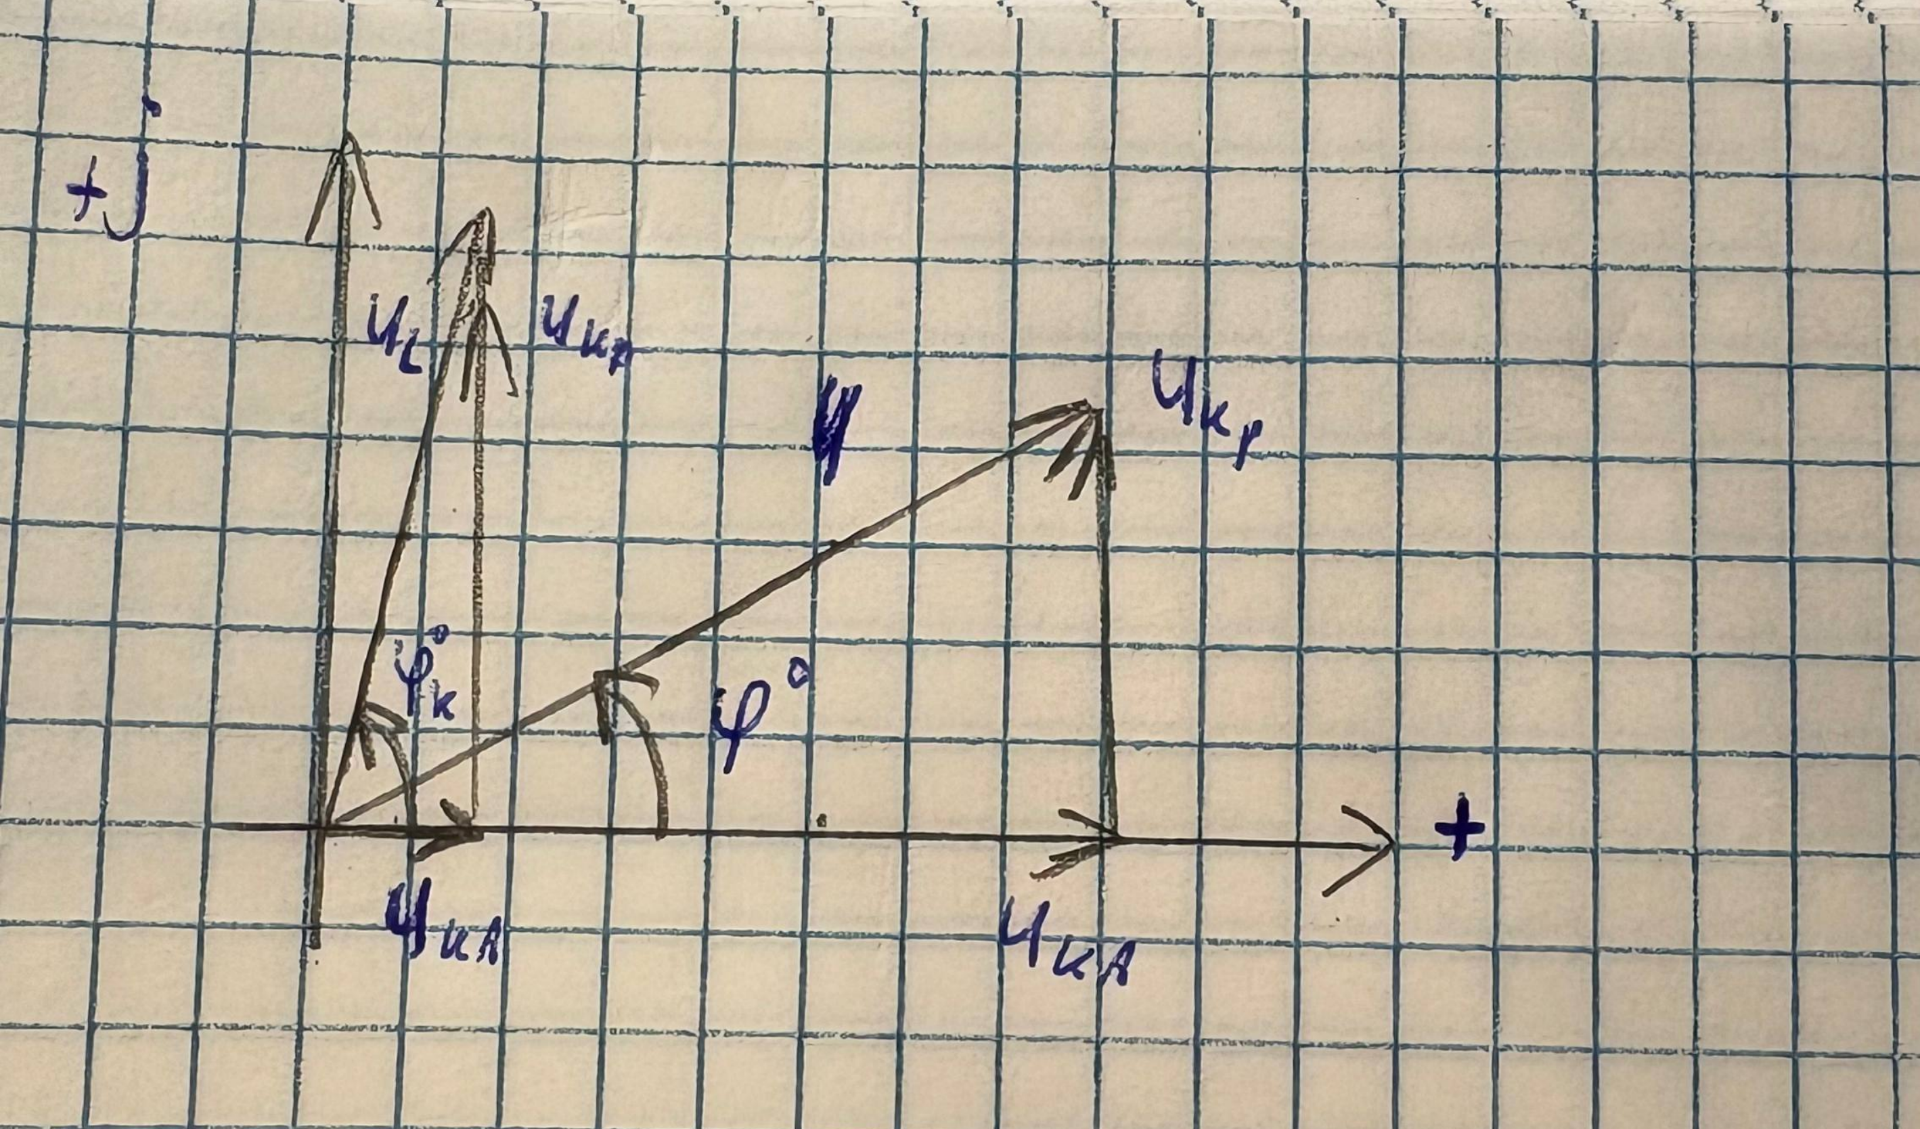 +j
U_L U_кр
U U_кр
φ°_к φ°
+
U_кА U_кА